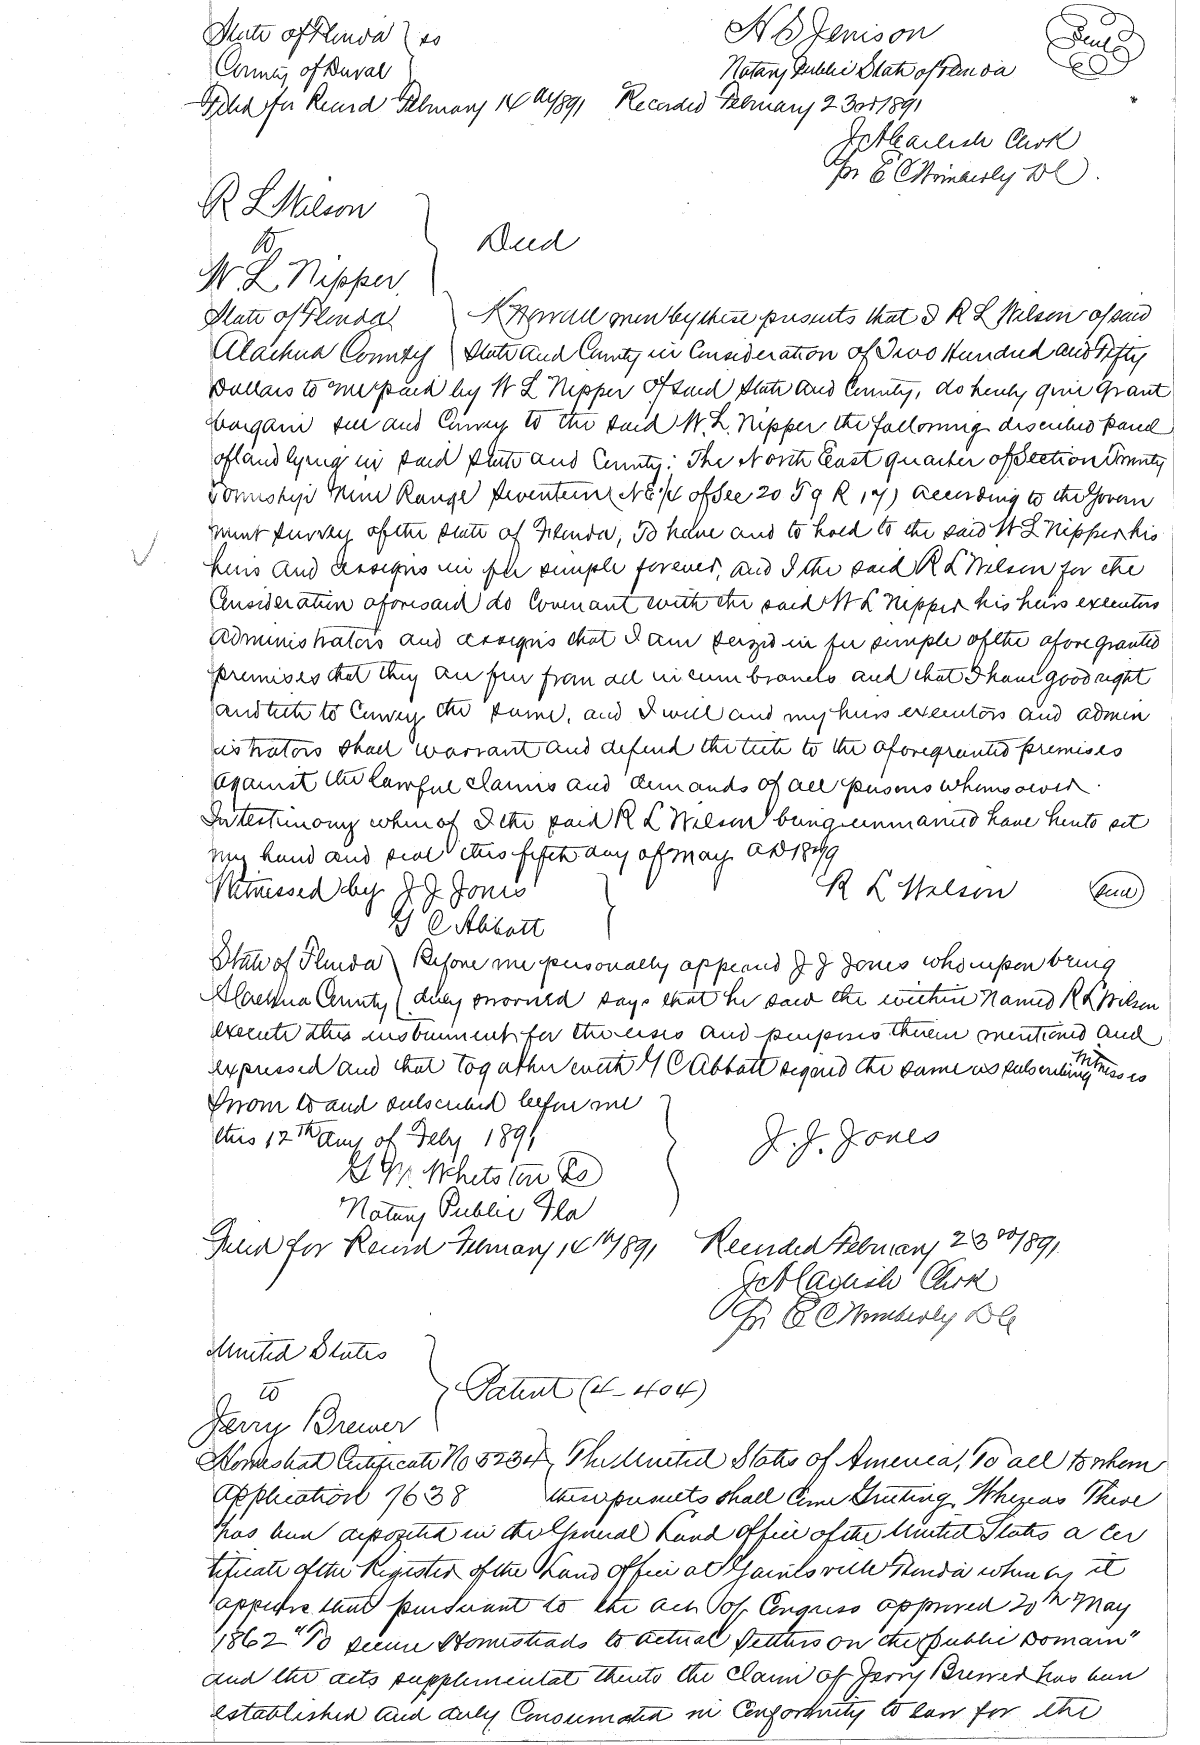 State of Florida } ss
County of Duval
H S Jenison Seal
Notary Public State of Florida
Filed for Record February 14th 1891 Recorded February 23rd 1891
Clerk
pr E C Wimberly DC.
R L Wilson
to
W. L. Nipper
Deed
State of Florida
Alachua County
Know all men by these presents that I R L Wilson of said
State and County in Consideration of Two Hundred and Fifty
Dollars to me paid by W L Nipper of said State and County, do hereby give grant
bargain sell and Convey to the said W. L. Nipper the following described parcel
of land lying in said State and County: The North East quarter of Section Twenty
Township Nine Range Seventeen (NE 1/4 of Sec 20 T 9 R 17) According to the Govern
ment Survey of the State of Florida, To have and to hold to the said W L Nipper his
heirs and assigns in fee simple forever, and I the said R L Wilson for the
Consideration aforesaid do Covenant with the said W L Nipper his heirs executors
administrators and assigns that I am seized in fee simple of the afore granted
premises that they are free from all incumbrances and that I have good right
and title to Convey the same, and I will and my heirs executors and admin
istrators shall warrant and defend the title to the aforegranted premises
against the lawful claims and demands of all persons whomsoever.
In testimony whereof I the said R L Wilson being unmarried have hereto set
my hand and seal this fifth day of May AD 1879
Witnessed by J J Jones
G C Abbott
R L Wilson Seal
State of Florida
Alachua County
Before me personally appeared J J Jones who upon being
duly sworned says that he saw the within Named R L Wilson
execute this instrument for the uses and purposes therein mentioned and
expressed and that together with G C Abbott signed the same as subscribing Witnesses
Sworn to and subscribed before me
this 12th day of Feby 1891
G W. Whetston
Notary Public Fla
J. J. Jones
Filed for Record February 14th 1891 Recorded February 23rd 1891
Clerk
pr E C Wimberly DC
United States
to
Jerry Brewer
Patent (4-404)
Homestead Certificate No 5234
Application 7638
The United States of America, To all to whom
these presents shall Come Greeting, Whereas There
has been deposited in the General Land Office of the United States a Cer
tificate of the Register of the Land Office at Gainesville Florida whereby it
appears that pursuant to the act of Congress approved 20th May
1862 "To secure Homesteads to actual Settlers on the public Domain"
and the acts supplemental thereto the Claim of Jerry Brewer has been
established and duly Consumated in Conformity to law for the